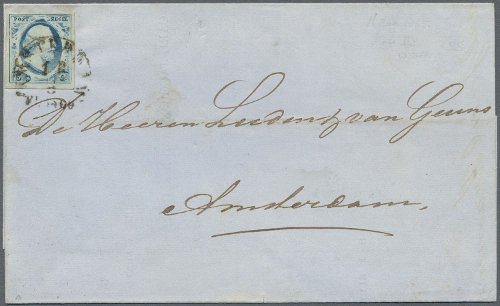 POST ZEGEL
De Heeren Luden & van Geuns
Amsterdam.